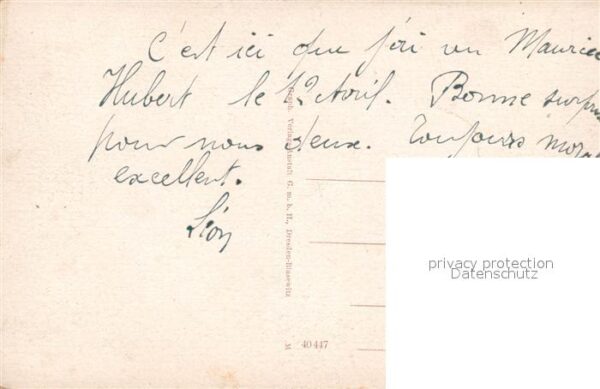 C'est ici que j'ai vu Maurice
Hubert le 12 Avril. Bonne surprise
pour nous deux. Toujours moral
excellent.
Graph. Verlags-Anstalt G. m. b. H., Dresden-Blasewitz
M 40447
privacy protection
Datenschutz